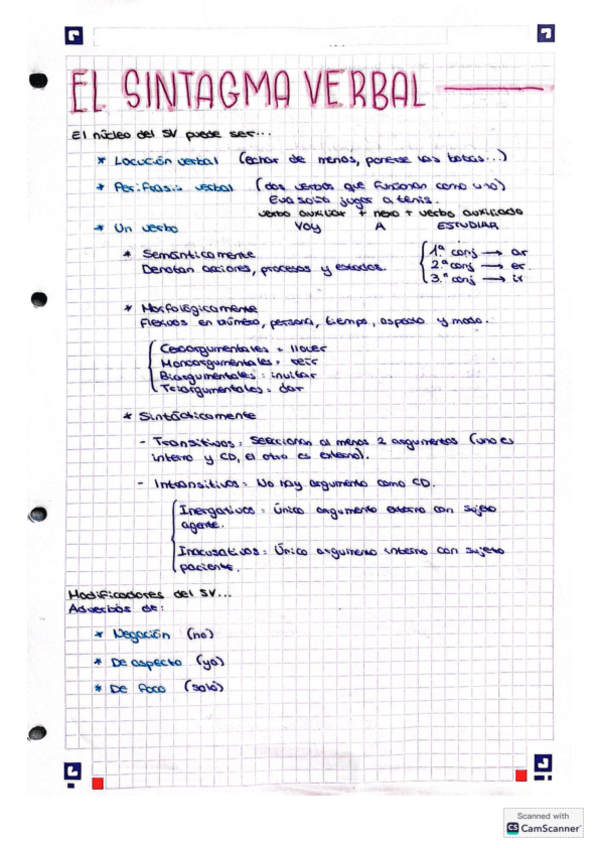 EL SINTAGMA VERBAL
El núcleo del SV puede ser...
* Locución verbal (echar de menos, ponerse las botas...)
* Perífrasis verbal (dos verbos que funcionan como uno)
Eva solía jugar a tenis.
verbo auxiliar + nexo + verbo auxiliado
* Un verbo VOY A ESTUDIAR
* Semánticamente 1.ª conj → ar
Denotan acciones, procesos y estados. 2.ª conj → er
3.ª conj → ir
* Morfológicamente
Flexivos en número, persona, tiempo, aspecto y modo.
Ceroargumentales = llover
Monoargumentales =
Biargumentales = invitar
Triargumentales = dar
* Sintácticamente
- Transitivos: Seleccionan al menos 2 argumentos (uno es
interno y CD, el otro es externo).
- Intransitivos: No hay argumento como CD.
Inergativos: Único argumento externo con sujeto
agente.
Inacusativos: Único argumento interno con sujeto
paciente.
Modificadores del SV...
Adverbios de:
* Negación (no)
* De aspecto (ya)
* De foco (solo)
Scanned with
CS CamScanner